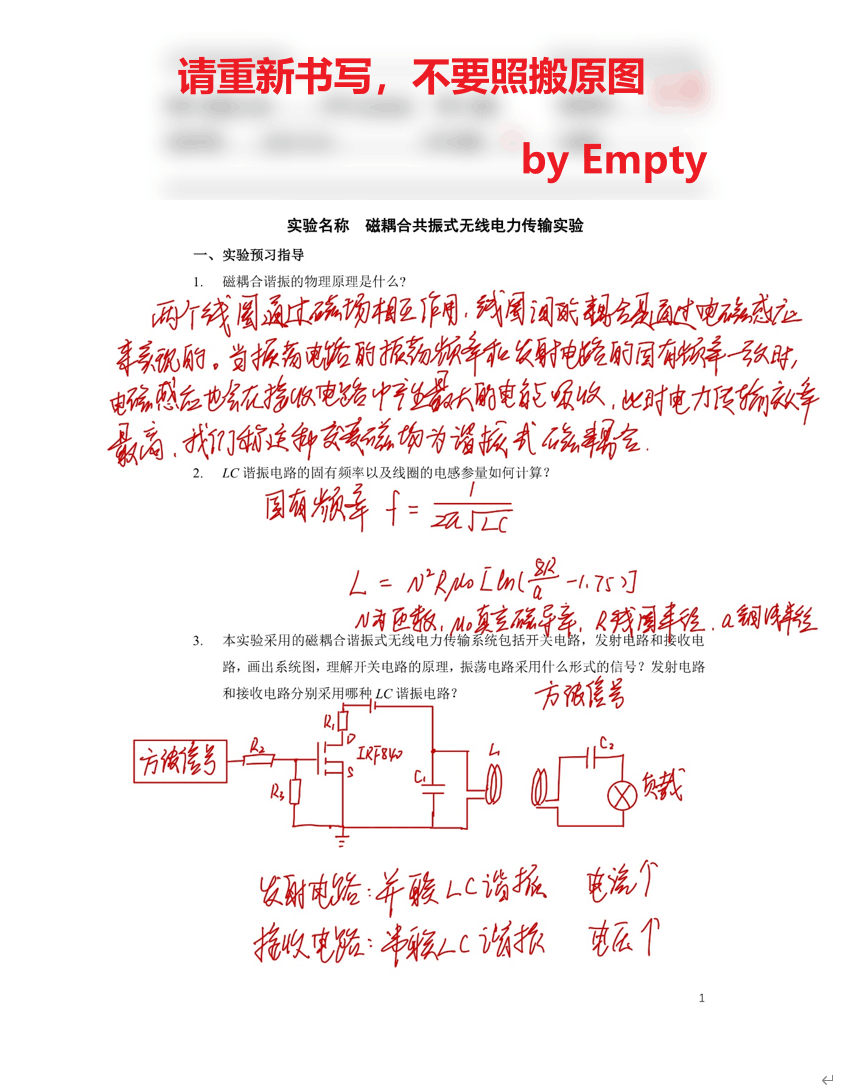 请重新书写，不要照搬原图
by Empty
实验名称 磁耦合共振式无线电力传输实验
一、实验预习指导
1. 磁耦合谐振的物理原理是什么?
两个线圈通过磁场相互作用，线圈间的耦合是通过电磁感应
来实现的。当振荡电路的振荡频率和发射电路的固有频率一致时,
电磁感应也会在接收电路中产生最大的电能吸收，此时电力传输效率
最高，我们称这种交变磁场为谐振式磁耦合.
2. LC 谐振电路的固有频率以及线圈的电感参量如何计算？
固有频率 f = 1/(2π√LC)
L = N²Rμ₀[ln(8R/a -1.75)]
N为匝数, μ₀真空磁导率, R线圈半径, a铜线半径
3. 本实验采用的磁耦合谐振式无线电力传输系统包括开关电路，发射电路和接收电
路，画出系统图，理解开关电路的原理，振荡电路采用什么形式的信号？发射电路
和接收电路分别采用哪种 LC 谐振电路？
方波信号
方波信号 R₂ R₃ R₁ D S IRF840 C₁ L₁ C₂ 负载
发射电路：并联LC谐振 电流↑
接收电路：串联LC谐振 电压↑
1